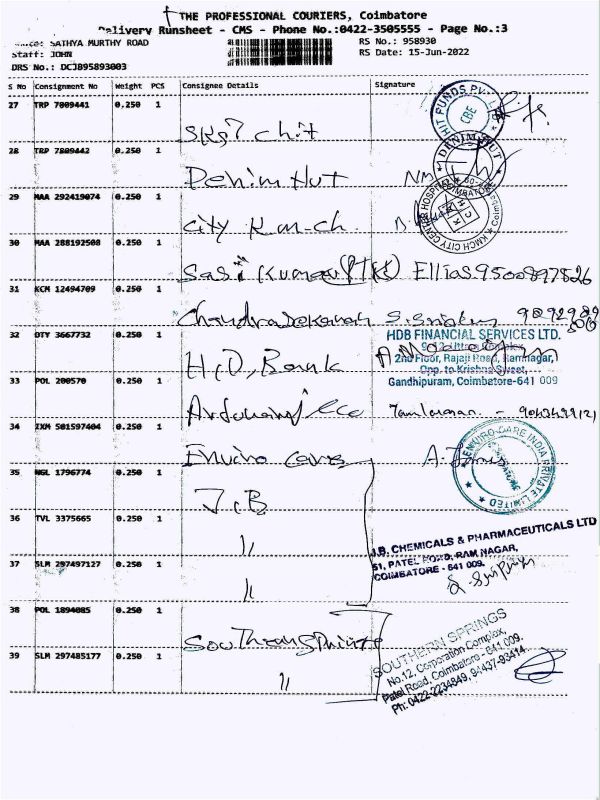 THE PROFESSIONAL COURIERS, Coimbatore
Delivery Runsheet - CMS - Phone No.:0422-3505555 - Page No.:3
SATHYA MURTHY ROAD
RS No.: 958930
Staff: JOHN
RS Date: 15-Jun-2022
DRS No.: DCJB95893003
S No Consignment No Weight PCS Consignee Details Signature
27 TRP 7809441 0.250 1
CHIT FUNDS PV
CBE
28 TRP 7809442 0.250 1
Denim Hut
DENIM HUT
COIMBATORE
29 MAA 292419074 0.250 1
City
KMCH CITY CENTRE HOSPITAL
30 MAA 288192508 0.250 1
Sasi Kumar Ellias 9500897526
31 KCM 12494709 0.250 1
Chandrasekaran
32 OTY 3667732 0.250 1
HDB FINANCIAL SERVICES LTD.
2nd Floor, Rajaji Road, Ramnagar,
Opp. to Krishna Sweet,
Gandhipuram, Coimbatore-641 009
H.D, Bank
33 POL 200570 0.250 1
34 IXM 501597404 0.250 1
Enviro care
ENVIRO CARE INDIA PRIVATE LIMITED
35 NGL 1796774 0.250 1
J.B
36 TVL 3375665 0.250 1
"
J.B. CHEMICALS & PHARMACEUTICALS LTD
51, PATEL ROAD, RAM NAGAR,
COIMBATORE - 641 009.
37 SLM 297497127 0.250 1
"
38 POL 1894085 0.250 1
SOUTHERN SPRINGS
No.12, Corporation Complex,
Patel Road, Coimbatore - 641 009.
Ph: 0422-2234849, 94437-93414.
39 SLM 297485177 0.250 1
"